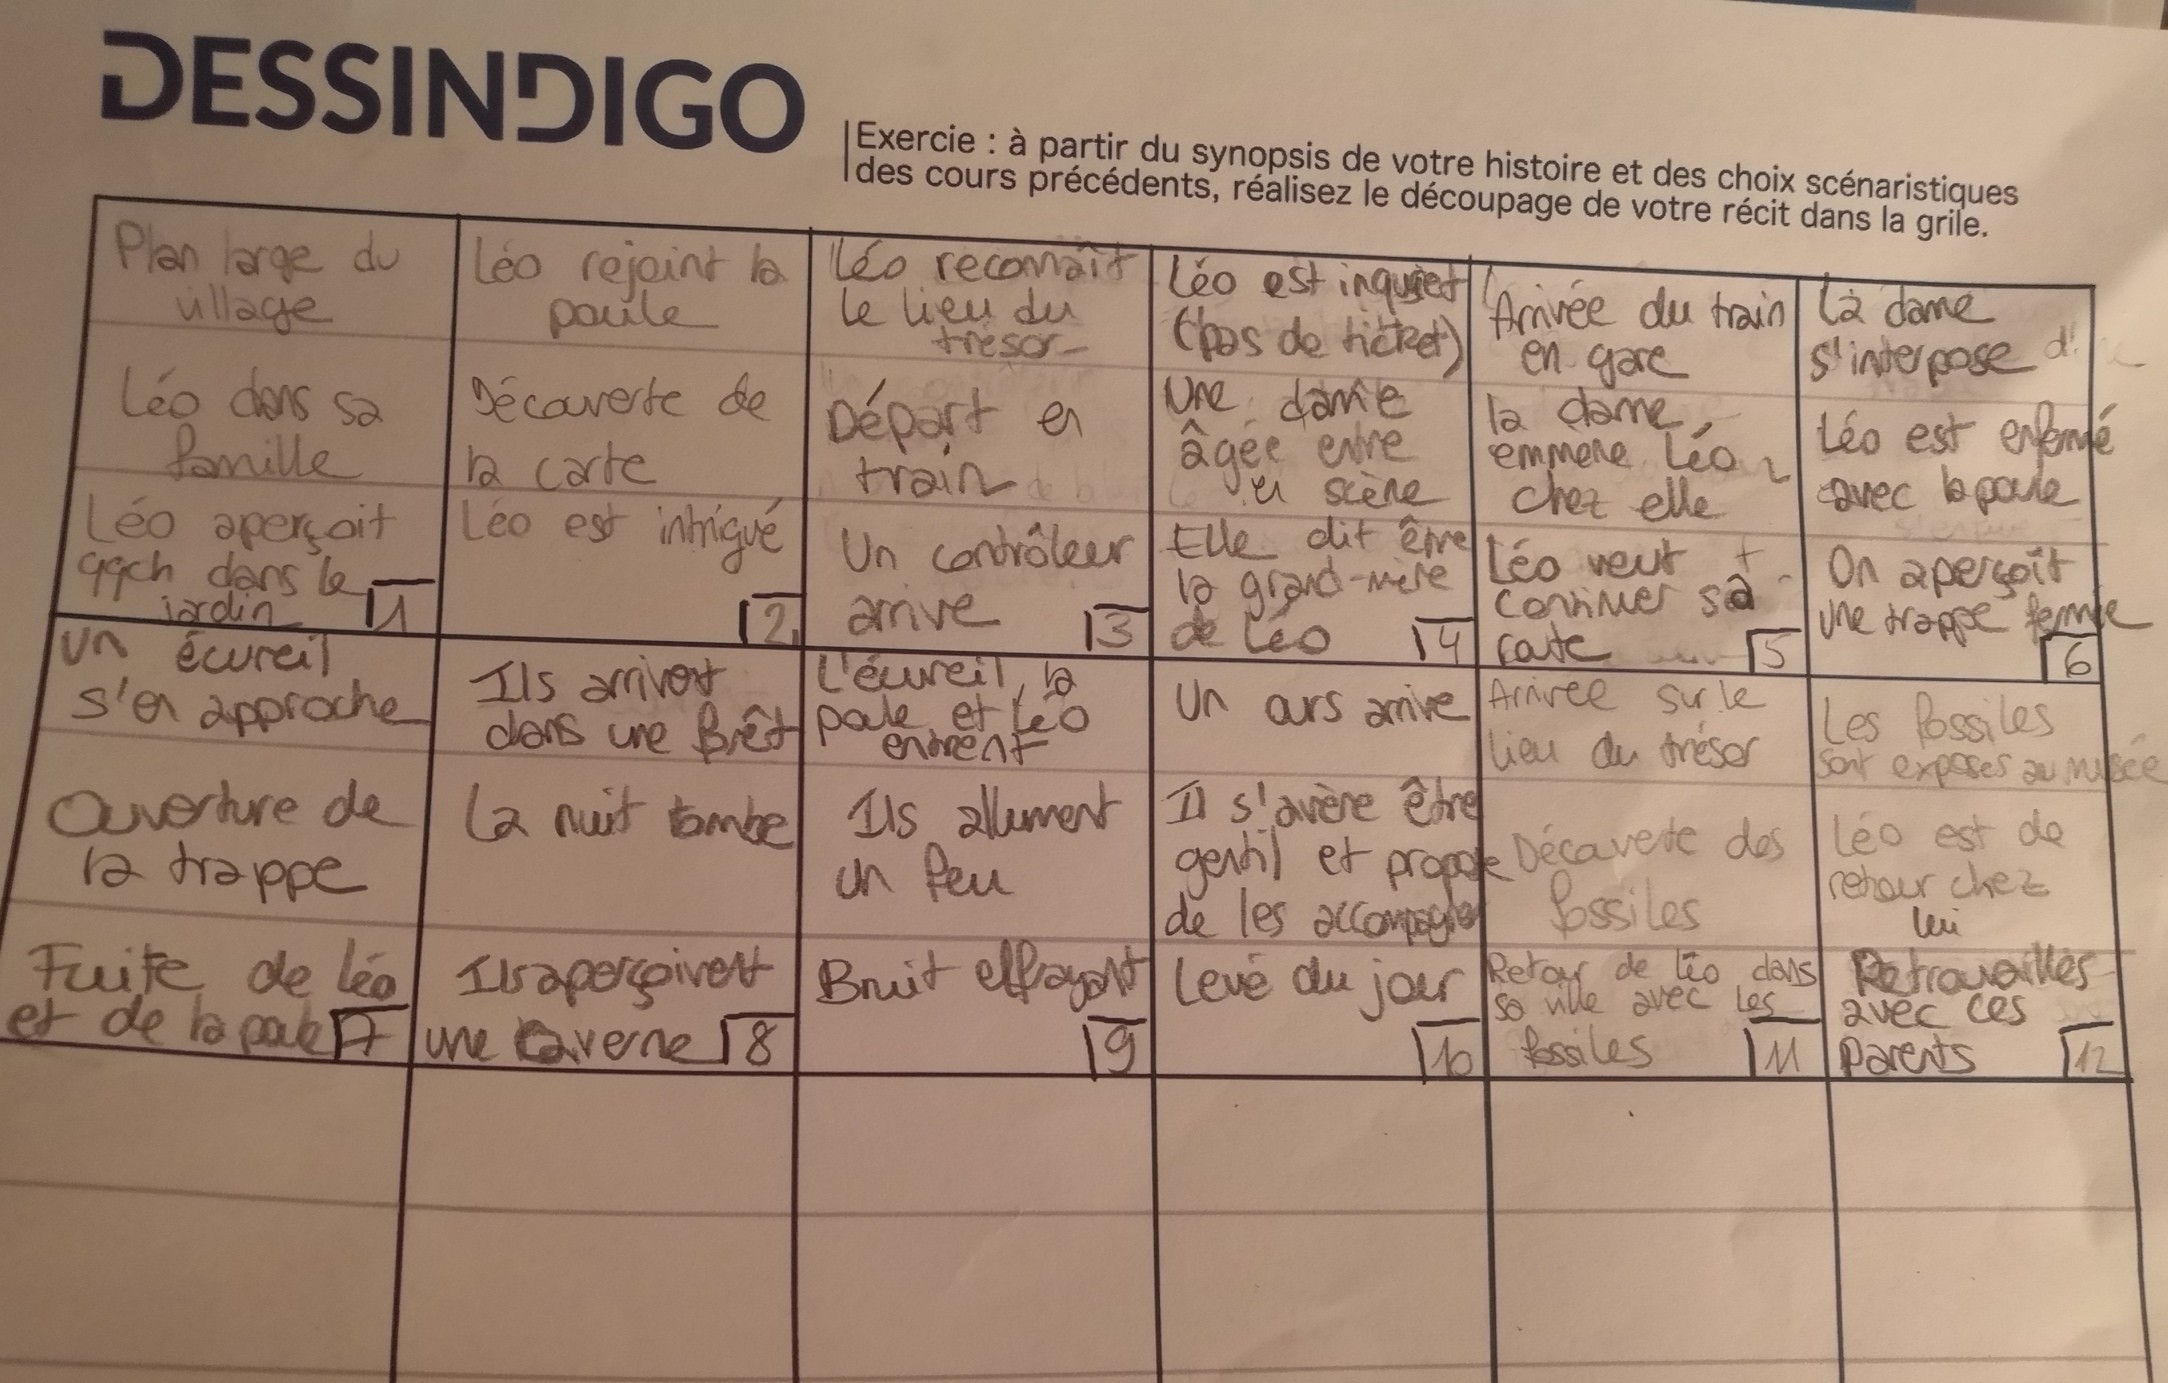 DESSINDIGO
Exercie : à partir du synopsis de votre histoire et des choix scénaristiques
des cours précédents, réalisez le découpage de votre récit dans la grile.
Plan large du
village
Léo dans sa
famille
Léo aperçoit
qqch dans le
jardin
1
Léo rejoint la
poule
Découverte de
la carte
Léo est intrigué
2
Léo reconnaît
le lieu du
trésor
Départ en
train
Un contrôleur
arrive
3
Léo est inquiet
(pas de ticket)
Une dame
âgée entre
en scène
Elle dit être
la grand-mère
de Léo
4
Arrivée du train
en gare
la dame
emmene Léo
chez elle
Léo veut
continuer sa
route
5
La dame
s'interpose
Léo est enfermé
avec la poule
On aperçoit
une trappe fermée
6
Un écureil
s'en approche
Ouverture de
la trappe
Fuite de Léo
et de la poule
7
Ils arrivent
dans une forêt
La nuit tombe
Ils aperçoivent
une caverne
8
L'écureil, la
poule et Léo
entrent
Ils allument
un feu
Bruit effrayant
9
Un ours arrive
Il s'avère être
gentil et propose
de les accompagner
Levé du jour
10
Arrivée sur le
lieu du trésor
Découverte des
fossiles
Retour de Léo dans
sa ville avec les
fossiles
11
Les fossiles
sont exposés au musée
Léo est de
retour chez
lui
Retrouvailles
avec ces
parents
12